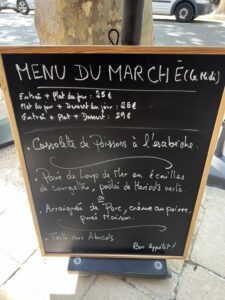 MENU DU MARCHÉ (Le Midi)
Entrée + Plat du jour : 25€
Plat du jour + Dessert du jour : 25€
Entrée + Plat + Dessert : 29€
. Cassolette de Poissons à l'escabèche.
. Pavé de Loup de Mer en écailles
de courgettes, poêlée de Haricots verts.
ou
. Arraignée de Porc, crème au poivre
purée Maison.
. Tarte aux Abricots
Bon Appétit !